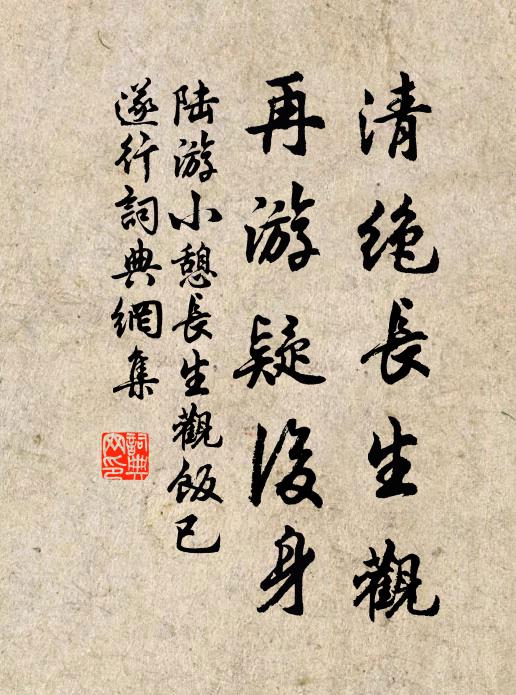 清絶長生觀
再游疑後身
陆游小憩長生觀飯已
遂行詞典網集
詞典网印